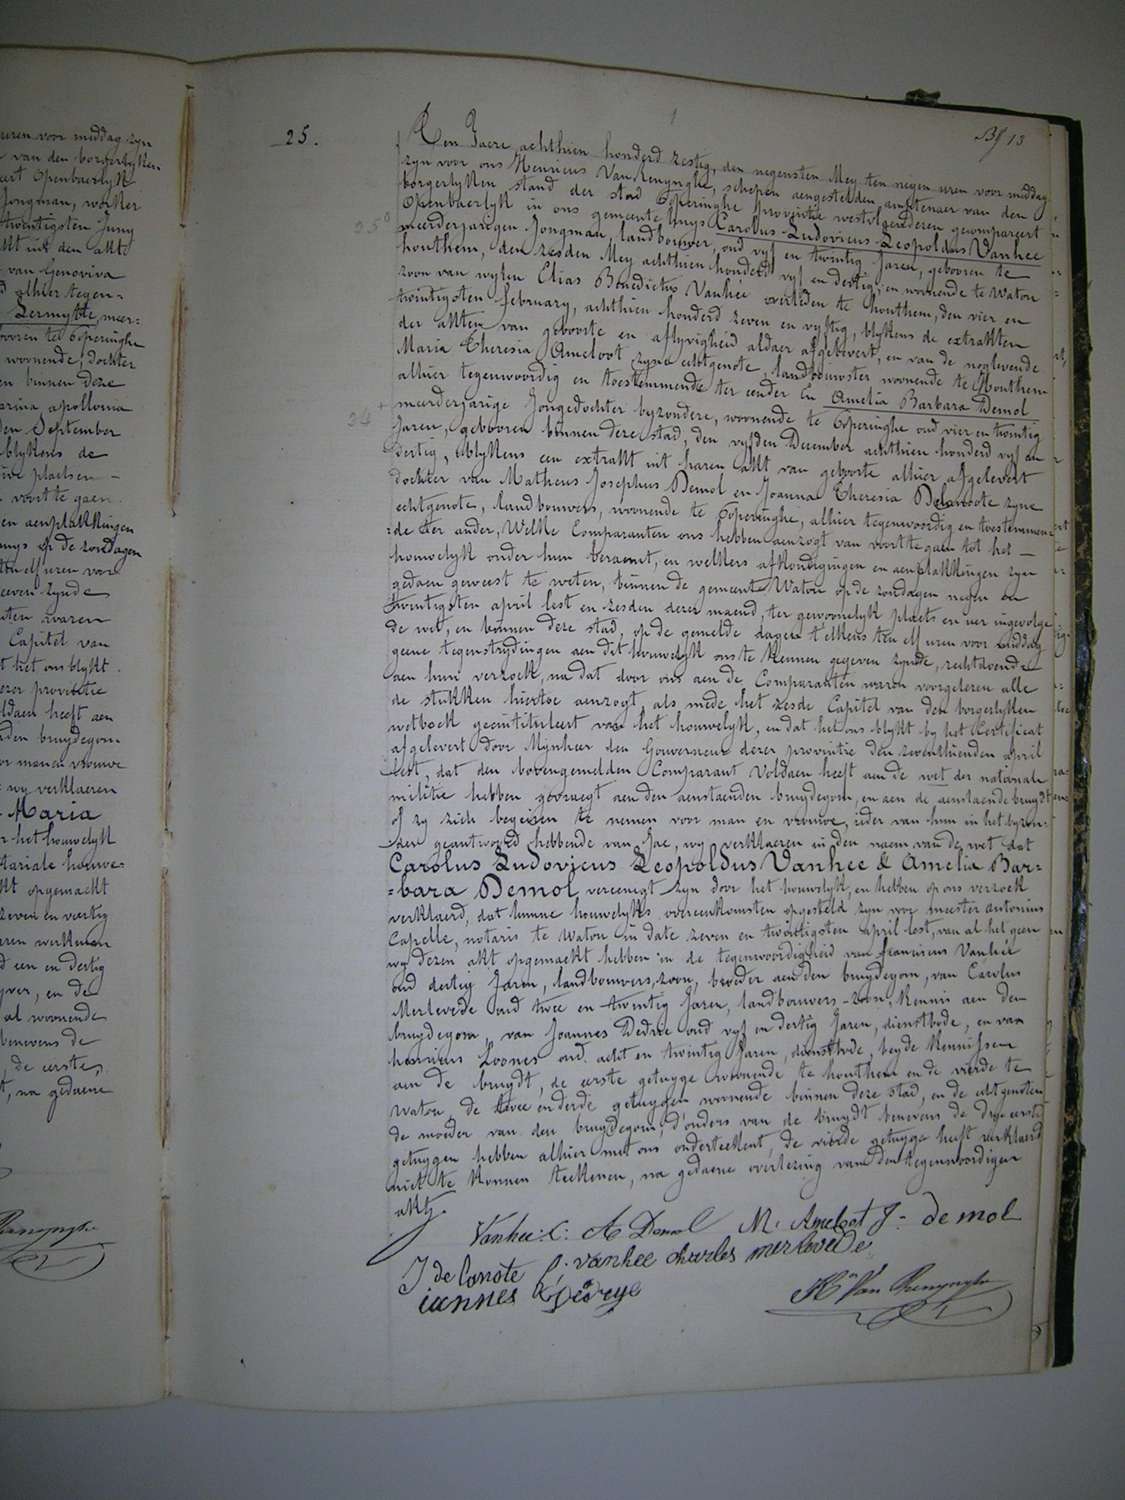 uren voor middag zyn
van den borgerlyken
Openbaerlyk
Jongman, werker
twintigsten Juny
uit den akt
van Genoviva
alhier tegen-
Dermytte, meer-
te Poperinghe
woonende, dochter
en binnen deze
apollonia
den September
blykens de
plaetsen -
voort te gaen
en aenplakkingen
op de zondagen
elf uren voor
geeven zynde
waren
Capitel van
het ons blykt
dezer provintie
voldaen heeft aen
den bruydegom
voor man en vrouwe
wy verklaeren
Maria
het houwelyk
notariale houwe-
akt opgemaekt
zeven en veertig
jaren werkman
een en dertig
en de
al woonende
benevens de
de eerste
na gedaene
25.
Bl 13
Den Jaere achthien honderd zestig, den negensten Mey ten negen uren voor middag
zyn voor ons Henricus Van Renynghe, schepen aengestelden amtenaer van den
borgerlyken stand der stad Poperinghe provintie westvlaenderen gecompareert
Openbaerlyk in ons gemeente huys Carolus-Ludovicus-Leopoldus Vanhee
25
meerderjaerigen Jongman, landbouwer, oud vyf en twintig Jaren, gebooren te
houthem, den zesden Mey achthien honderd vyf en dertig, en woonende te Watou
zoon van wylen Elias Benedictus Vanhée overleden te houthem, den vier en
twintigsten february, achthien honderd zeven en vyftig, blykens de extrakten
der akten van geboorte en aflyvigheid aldaer afgelevert, en van de noglevende
Maria Theresia Ameloot zyne echtgenote, landbouwster woonende te Houthem
alhier tegenwoordig en toestemmende ter eender En Amelia Barbara Demol
24
meerderjarige Jongedochter byzondere, woonende te Poperinghe oud vier en twintig
Jaren, gebooren binnen deze stad, den vyfden December achthien honderd vyf en
dertig, blykens een extrakt uit haren akt van geboorte alhier afgelevert
dochter van Matheus Josephus Demol en Joanna Theresia Delanoote zyne
echtgenote, landbouwers, woonende te Poperinghe, alhier tegenwoordig en toestemmen-
=de ter ander, Welke Comparanten ons hebben aenzogt van voort te gaen tot het —
houwelyk onder hun beraemt, en welkers afkondigingen en aenplakkingen zyn
gedaen geweest te weten, binnen de gemeente Watou op de zondagen negen en
twintigsten april lest en zesden dezer maend, ter gewoonelyk plaets en uer ingevolge
de wet, en binnen deze stad, op de gemelde dagen telkens ten elf uren voor middag
geene tegenstrydingen aen dit houwelyk ons te kennen gegeven zynde, rechtdoende
aen hun verzoek, na dat door ons aen de Comparanten waren voorgelezen alle
de stukken hiertoe aenzogt, als mede het zesde Capitel van den borgerlyken
wetboek geintituleert van het houwelyk, en dat het ons blykt by het Certificat
afgelevert door Mynheer den Gouverneur dezer provintie den zeventhienden april
lest, dat den bovengemelden Comparant voldaen heeft aen de wet der nationale
militie hebben gevraegt aen den aenstaenden bruydegom, en aen de aenstaende bruydt
of zy zich begeiren te nemen voor man en vrouwe, ieder van hun in het byzon-
der geantwoord hebbende van Jae, wy verklaeren in den naem van de wet dat
Carolus Ludovicus Leopoldus Vanhee & Amelia Bar-
=bara Demol vereenigt zyn door het houwelyk, en hebben op ons verzoek
verklaerd, dat hunne houwelyks overeenkomsten opgesteld zyn voor meester antonius
Capelle, notaris te Watou in date zeven en twintigsten april lest, van al het geen
wy dezen akt opgemaekt hebben in de tegenwoordigheid van franciscus Vanhée
oud dertig Jaren, landbouwers zoon, broeder aen den bruydegom, van Carolus
Merlevede oud twee en twintig Jaren, landbouwers-zoon, Kennis aen den
bruydegom, van Joannes Dedrye oud vyf en dertig Jaren, dienstbode, en van
henricus Loones oud acht en twintig Jaren, dienstbode, beyde kennissen
aen de bruydt, de eerste getuyge woonende te houthem en de vierde te
Watou, de twee en derde getuygen woonende binnen deze stad, en de echtgenoten
de moeder van den bruydegom, d'ouders van de bruydt benevens de drye eerste
getuygen hebben alhier met ons onderteekent, de vierde getuyge heeft verklaerd
niet te konnen teekenen, na gedaene overlezing van den tegenwoordigen
akt.
Vanhee. C. A Demol M. Ameloot J. de mol
J de lanote f. vanhee charles merlevede
ioannes Dedrye
Hri Van Renynghe